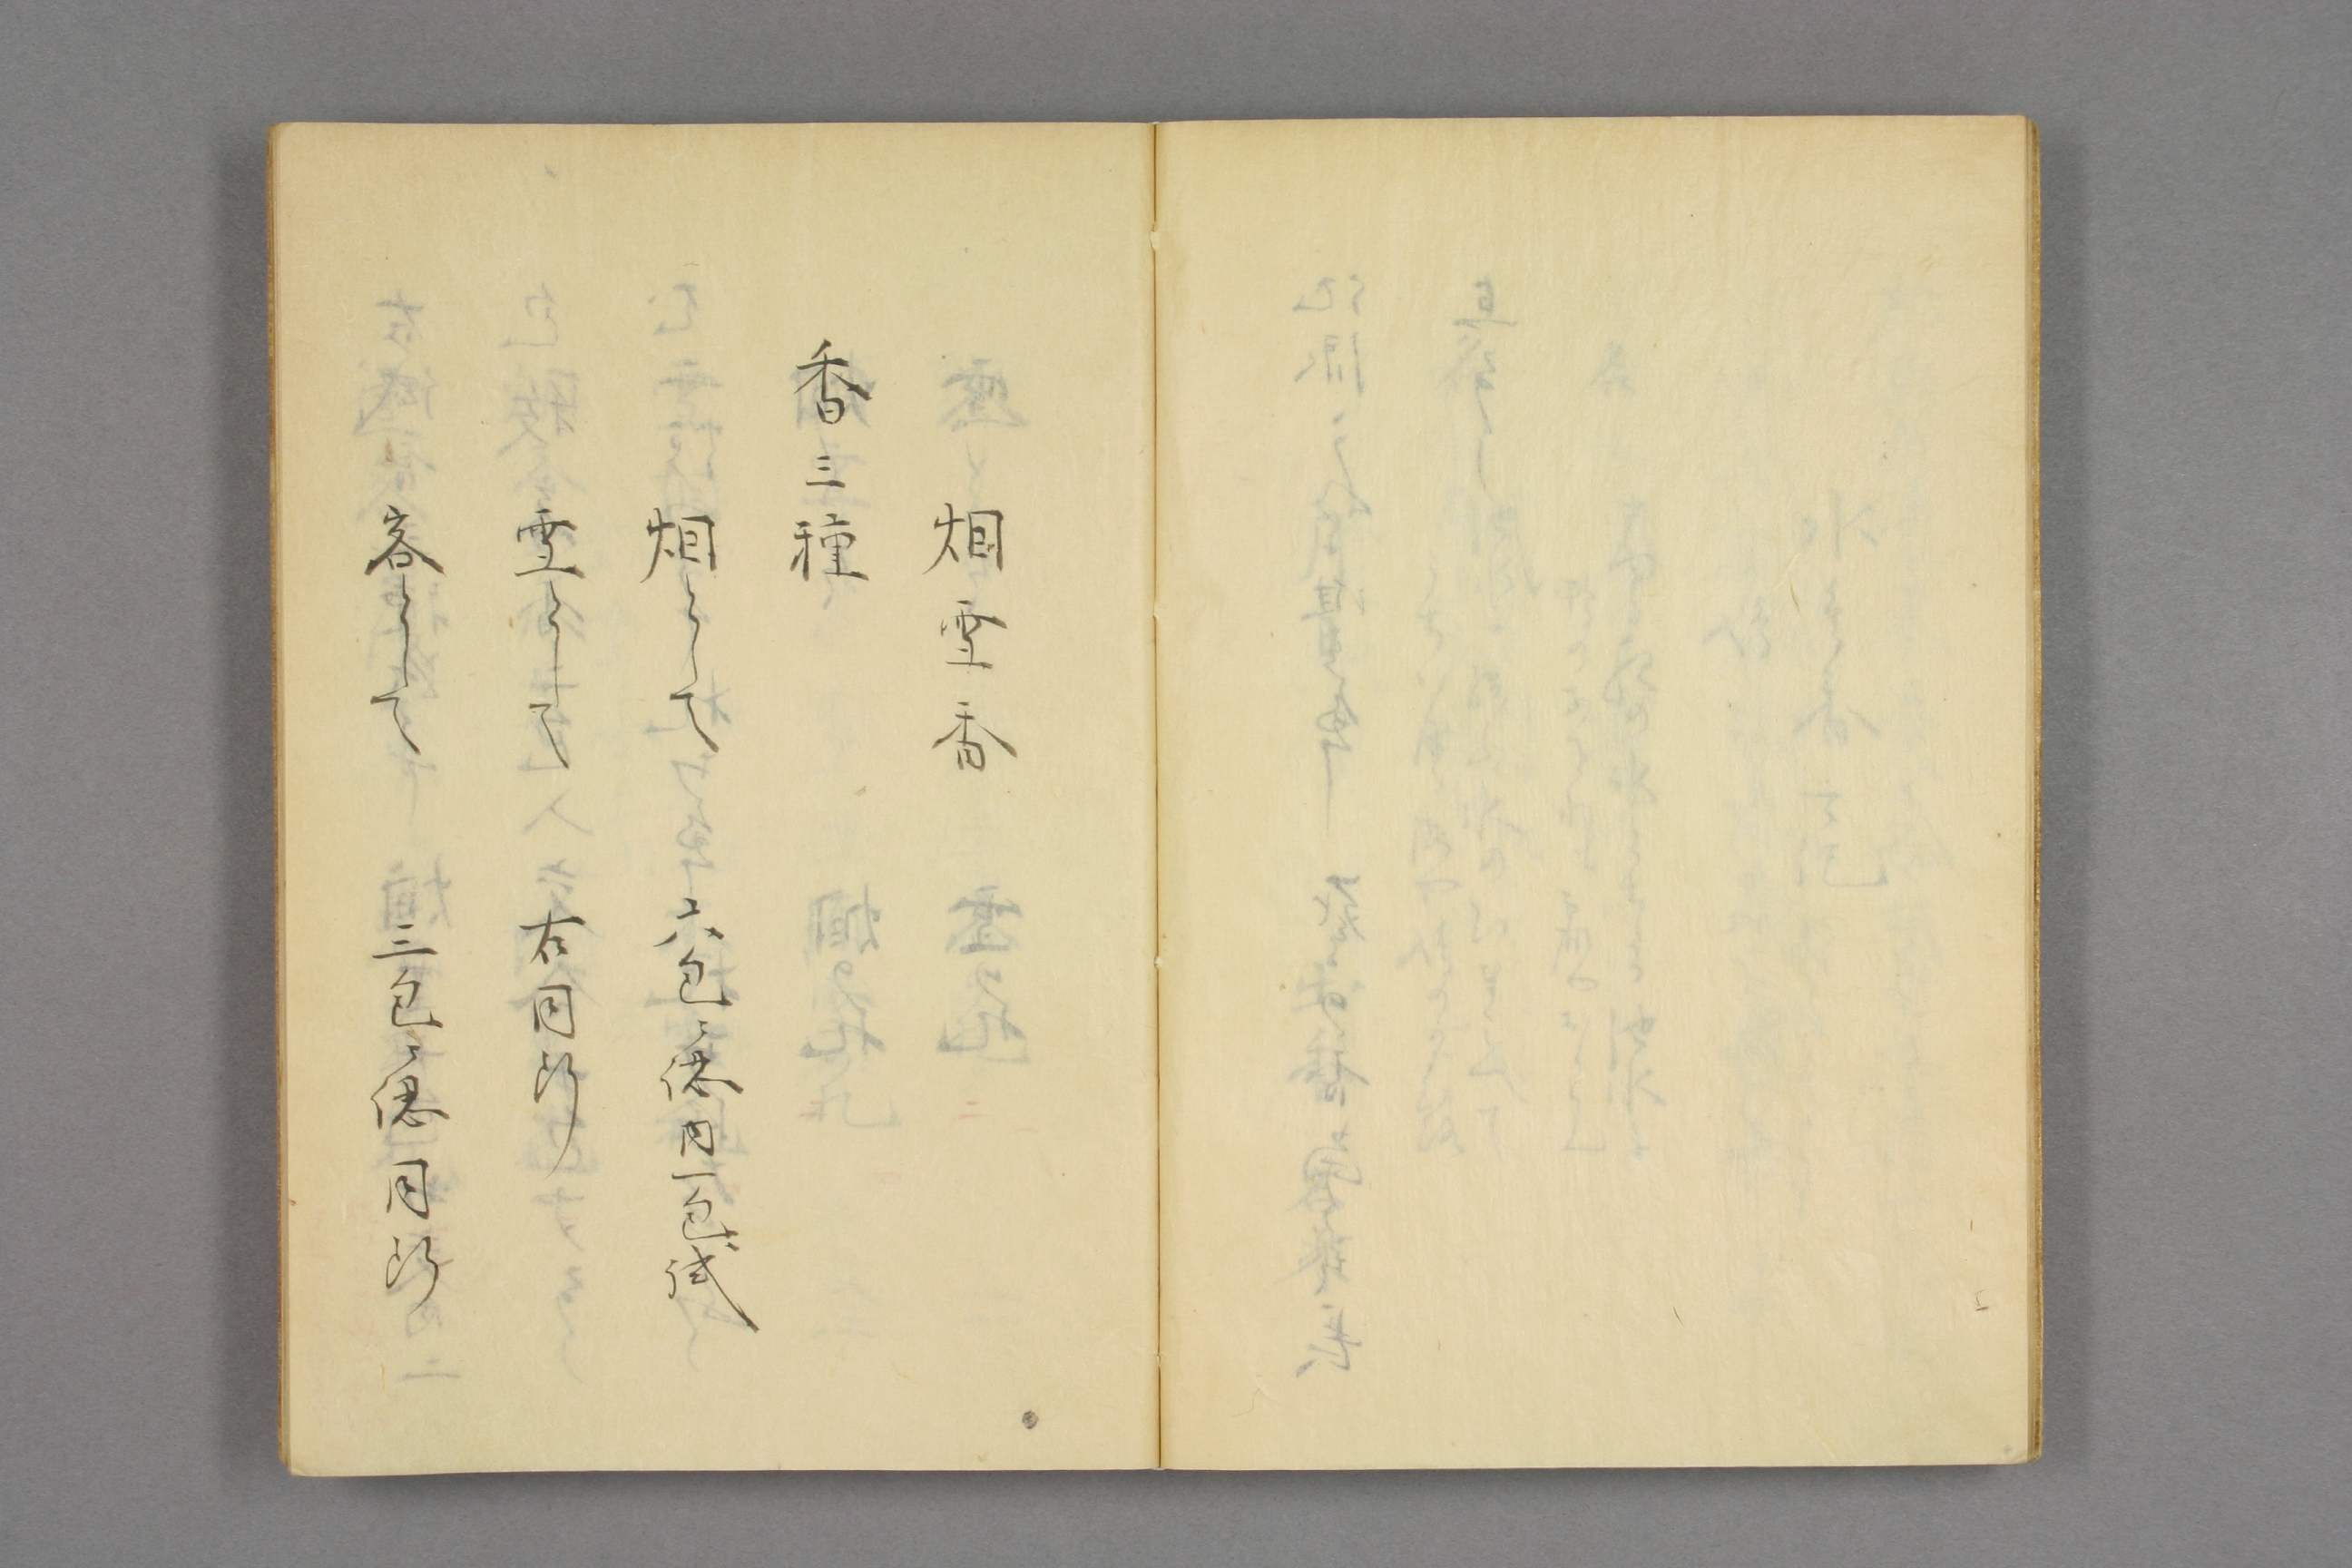 烟雲香
香三種
烟として六包ニ認内一包試
雲として右同断
客として三包ニ認同断